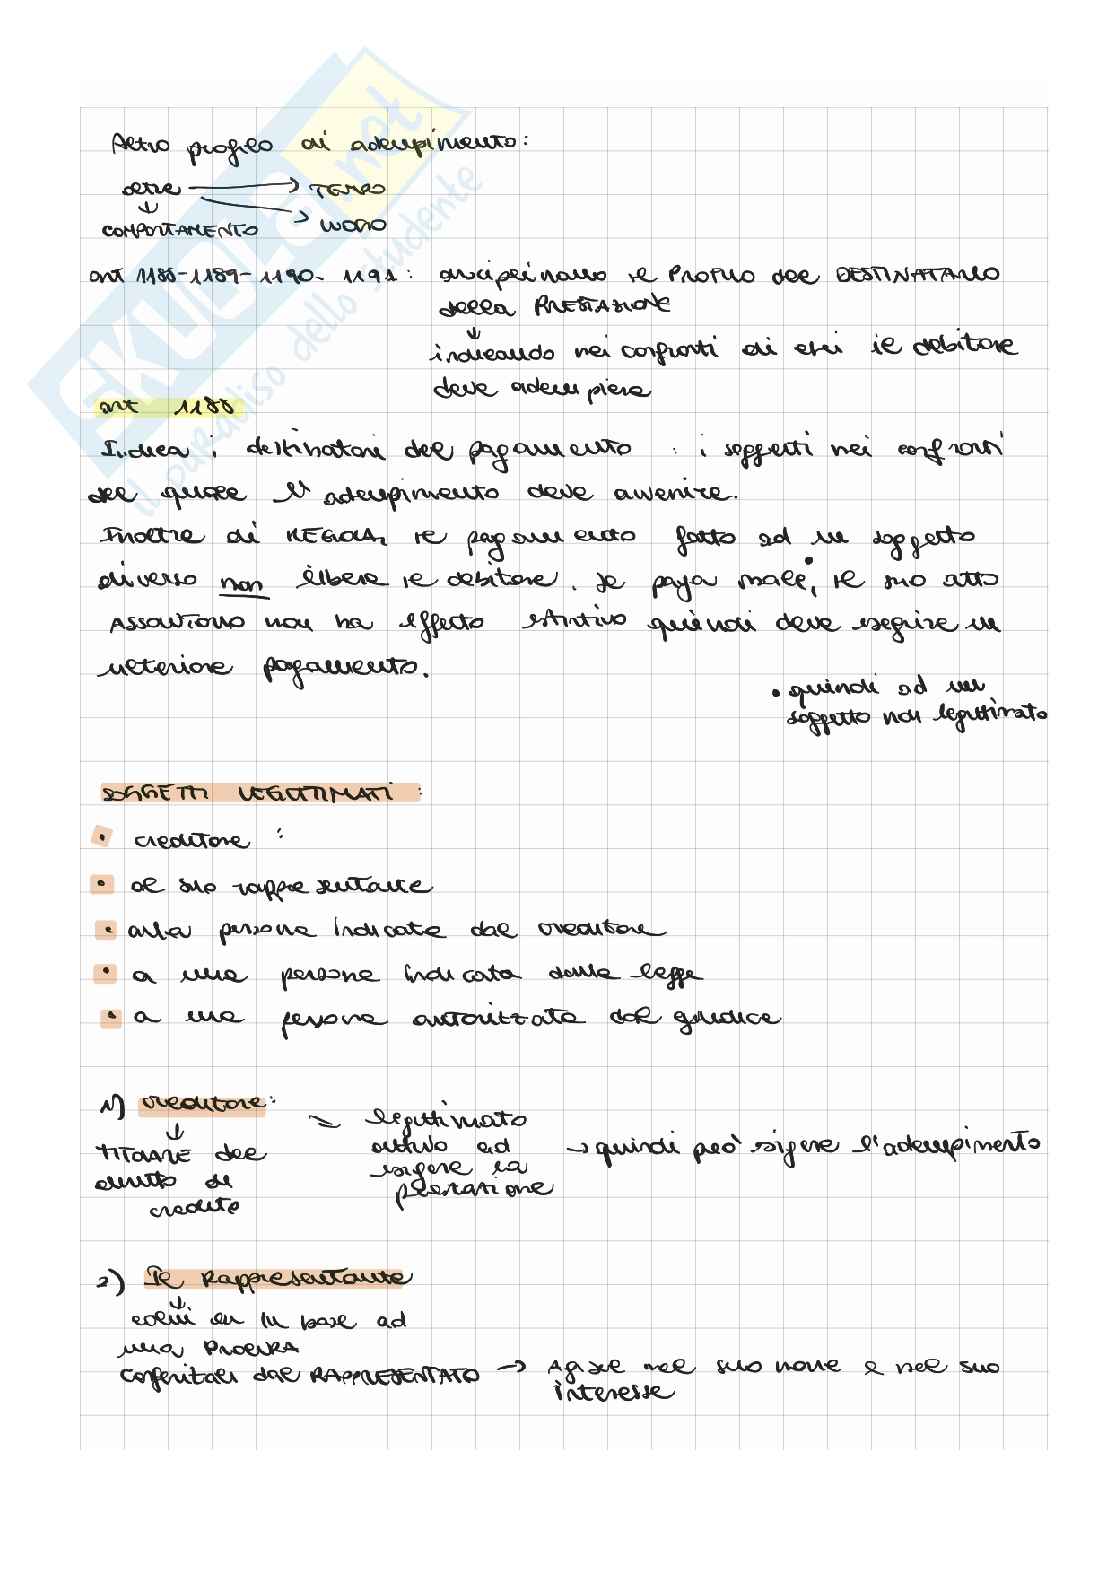 Altro profilo di adempimento:
oltre → TEMPO
COMPORTAMENTO → LUOGO
art 1188-1189-1190-1191: disciplinano il PROFILO del DESTINATARIO
della PRESTAZIONE
indicando nei confronti di chi il debitore
deve adempiere
art 1188
Indica i destinatari del pagamento : i soggetti nei confronti
del quale l'adempimento deve avvenire.
Inoltre di REGOLA, il pagamento fatto ad un soggetto
diverso non libera il debitore. Se paga male, il suo atto
ASSOLUTORIO non ha effetto estintivo quindi deve eseguire un
ulteriore pagamento.
• quindi ad un
soggetto non legittimato
SOGGETTI LEGITTIMATI:
• creditore :
• al suo rappresentante
• alla persona indicata dal creditore
• a una persona indicata dalla legge
• a una persona autorizzata dal giudice
1) creditore: = legittimato
TITOLARE del diritto di credito
attivo ad
esigere la
prestazione
→ quindi può esigere l'adempimento
2) Il Rappresentante
colui che in base ad
una PROCURA
conferitagli dal RAPPRESENTATO → Agisce nel suo nome e nel suo
interesse
SKUOLA.net
il paradiso dello studente